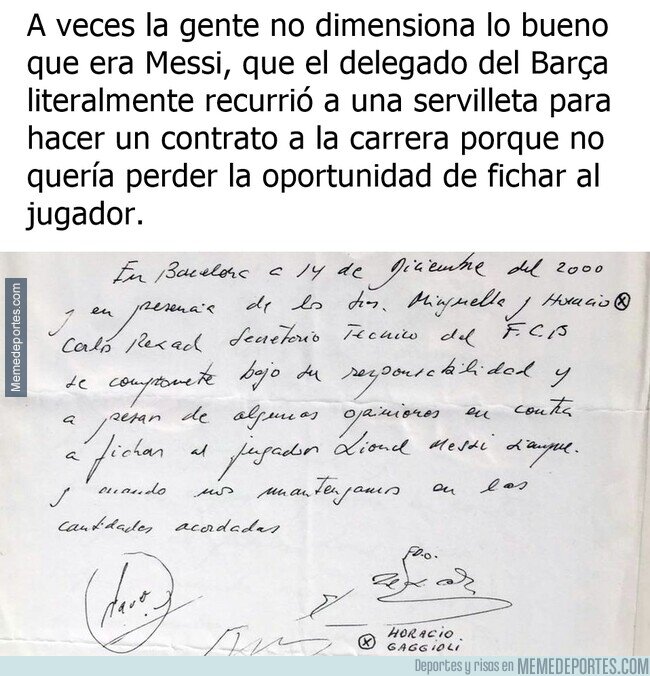 A veces la gente no dimensiona lo bueno
que era Messi, que el delegado del Barça
literalmente recurrió a una servilleta para
hacer un contrato a la carrera porque no
quería perder la oportunidad de fichar al
jugador.
Memedeportes.com
En Barcelona a 14 de Diciembre del 2000
y en presencia de los Srs. Minguella y Horacio
Carlos Rexach Secretario Tecnico del F.C.B
se compromete bajo su responsabilidad y
a pesar de algunas opiniones en contra
a fichar al jugador Lionel Messi siempre
y cuando nos mantengamos en las
cantidades acordadas
HORACIO
GAGGIOLI
Deportes y risas en MEMEDEPORTES.COM